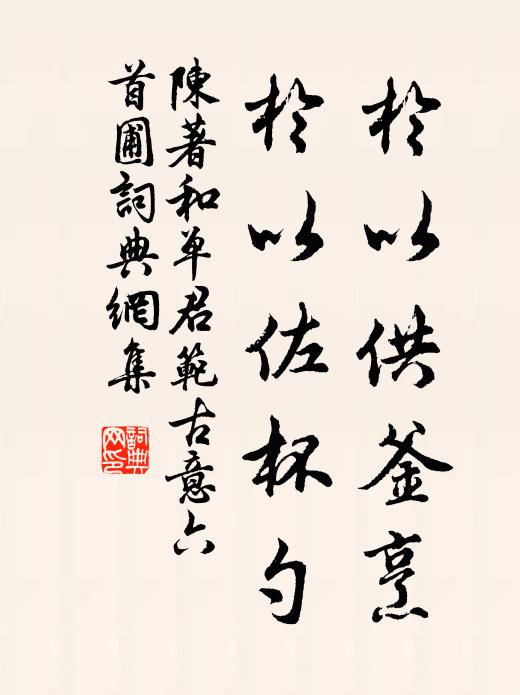 於以供釜烹
於以佐杯勺
陳著和单君範古意六
首圃詞典網集
詞典
网印